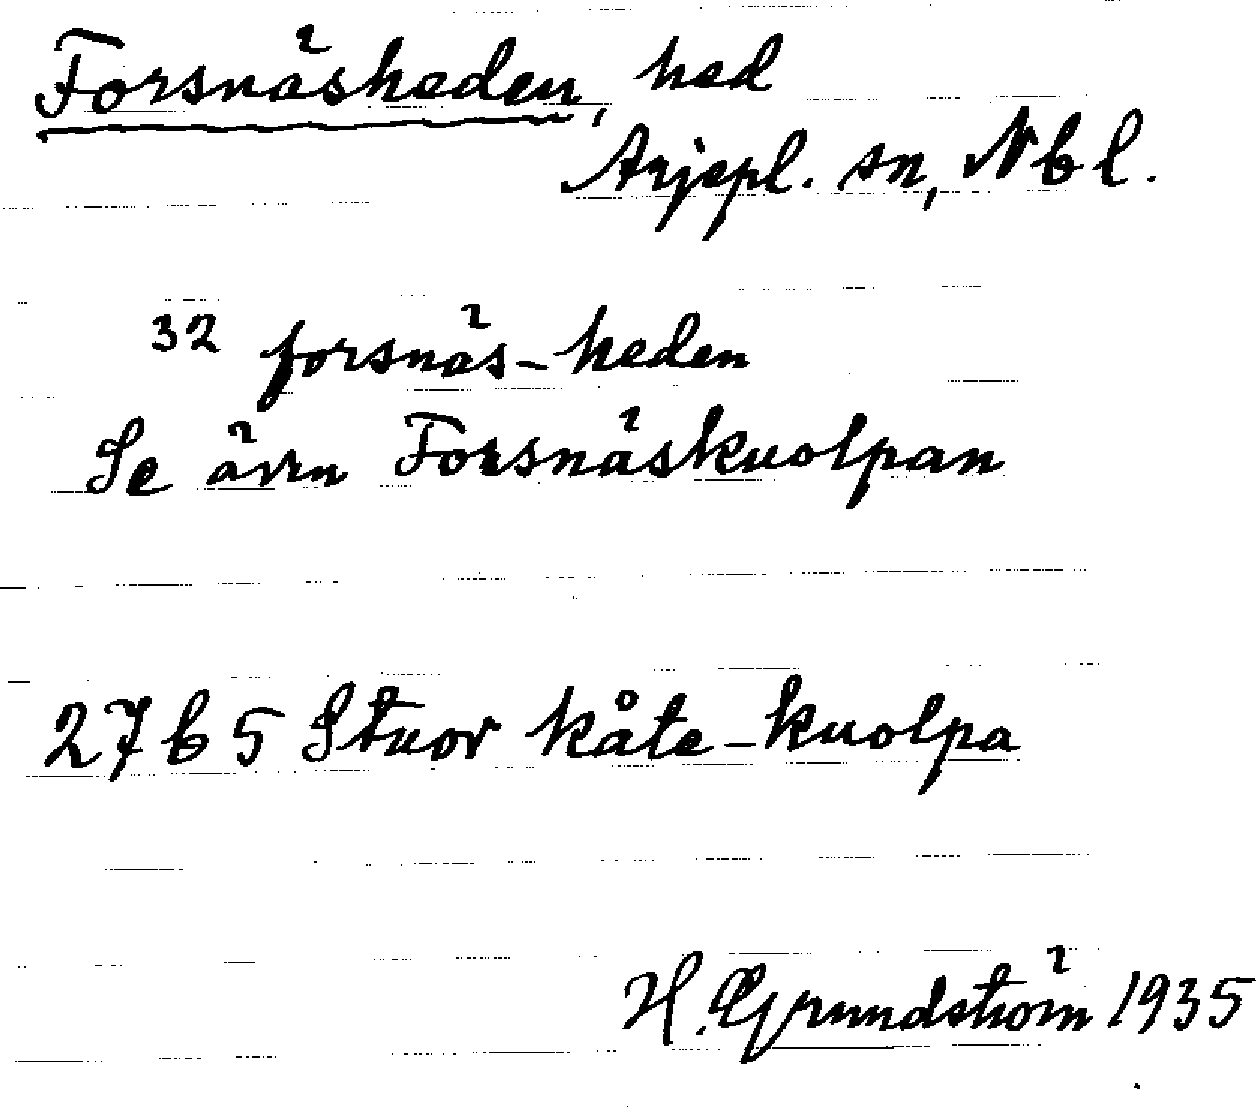 Forsnäsheden, hed
Arjepl. sn, Nbl.
32 forsnäs-heden
Se även Forsnäskuolpan
2765 Stuor kåte-kuolpa
H. Grundström 1935